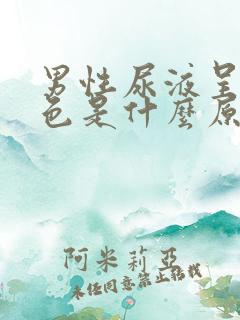 男性尿液呈
色是什麼原
阿米莉亞
未经同意禁止转载